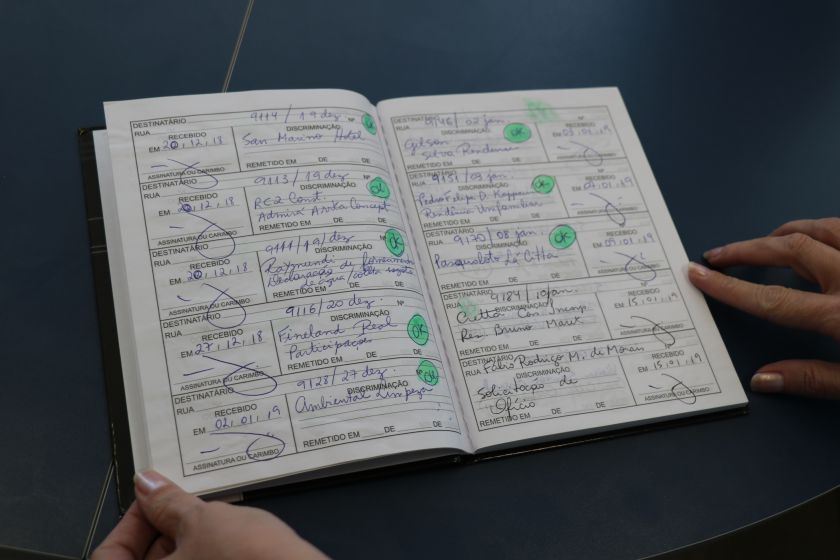 DESTINATÁRIO 9114 / 19 dez. Nº
RUA DISCRIMINAÇÃO
RECEBIDO San Marino Hotel
EM 20, 12, 18
REMETIDO EM DE DE
ASSINATURA OU CARIMBO
DESTINATÁRIO 9113 / 19 dez. Nº
RUA DISCRIMINAÇÃO OK
RECEBIDO RC2 Const.
EM 20, 12, 18 Admirá Anita Concept
REMETIDO EM DE DE
ASSINATURA OU CARIMBO
DESTINATÁRIO 9111 / 19 / dez Nº
RUA DISCRIMINAÇÃO OK
RECEBIDO Raymundi
EM 20, 12, 18 Declaração de fornecimento
de água / coleta esgoto
REMETIDO EM DE DE
ASSINATURA OU CARIMBO
DESTINATÁRIO 9116 / 20 dez. Nº
RUA DISCRIMINAÇÃO OK
RECEBIDO Fineland Real
EM 27, 12, 18 Participações
REMETIDO EM DE DE
ASSINATURA OU CARIMBO
DESTINATÁRIO 9128 / 27 dez. Nº
RUA DISCRIMINAÇÃO OK
RECEBIDO Ambiental Limpeza
EM 02, 01, 19
REMETIDO EM DE DE
ASSINATURA OU CARIMBO
DESTINATÁRIO 9146 / 02 jan. Nº
RUA DISCRIMINAÇÃO OK
RECEBIDO
Gilson EM 03, 01, 19
Silva
REMETIDO EM DE DE
ASSINATURA OU CARIMBO
DESTINATÁRIO 9151 / 03 jan. Nº
RUA DISCRIMINAÇÃO OK
RECEBIDO
Pedro Felipe D. EM 07, 01, 19
Residência Unifamiliar
REMETIDO EM DE DE
ASSINATURA OU CARIMBO
DESTINATÁRIO 9170 / 08 jan. Nº
RUA DISCRIMINAÇÃO OK
RECEBIDO
Pasqualotto La Città EM 09, 01, 19
REMETIDO EM DE DE
ASSINATURA OU CARIMBO
DESTINATÁRIO 9184 / 10 jan. Nº
RUA DISCRIMINAÇÃO
RECEBIDO
Città Con. EM 15, 01, 19
Res. Bruno
REMETIDO EM DE DE
ASSINATURA OU CARIMBO
DESTINATÁRIO Nº
RUA Fabio Rodrigo M. de Moraes
DISCRIMINAÇÃO RECEBIDO
Solicitação de EM 15, 01, 19
Ofício
REMETIDO EM DE DE
ASSINATURA OU CARIMBO